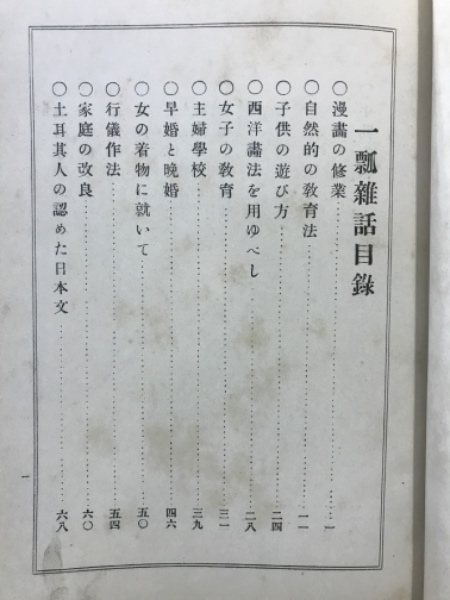 一瓢雜話目錄
○漫畵の修業……一
○自然的の敎育法……一一
○子供の遊び方……二四
○西洋畵法を用ゆべし……二八
○女子の敎育……三一
○主婦學校……三九
○早婚と晩婚……四六
○女の着物に就いて……五〇
○行儀作法……五四
○家庭の改良……六〇
○土耳其人の認めた日本文……六八
一